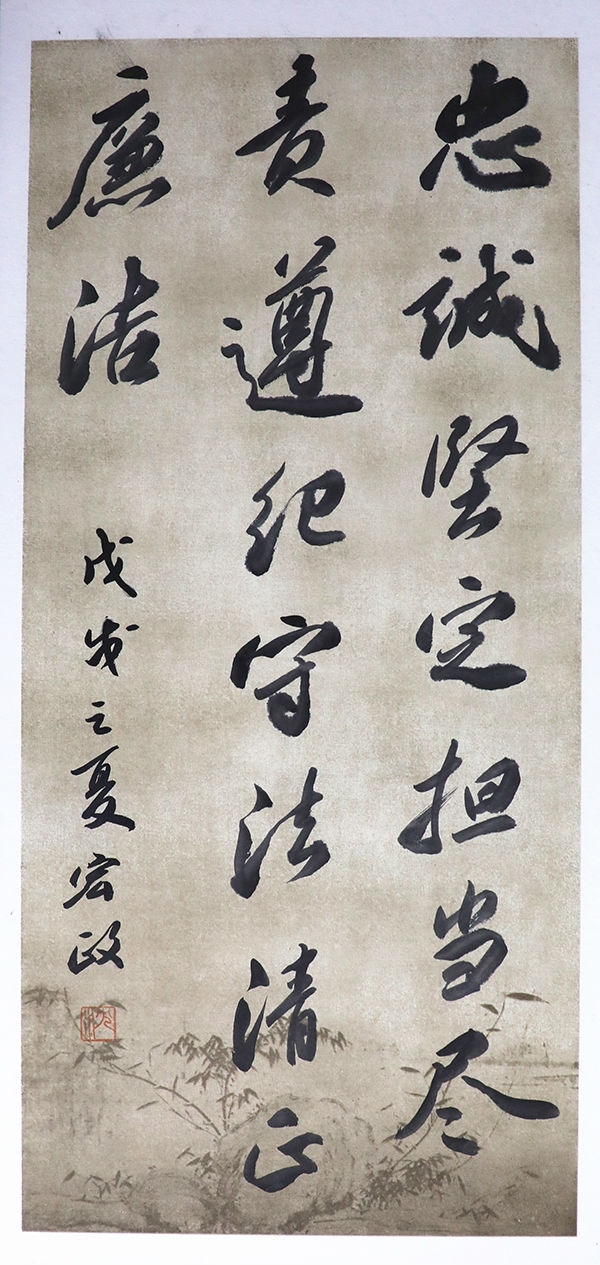 忠誠堅定担当尽
责遵纪守法清正
廉洁
戊戌之夏宏政